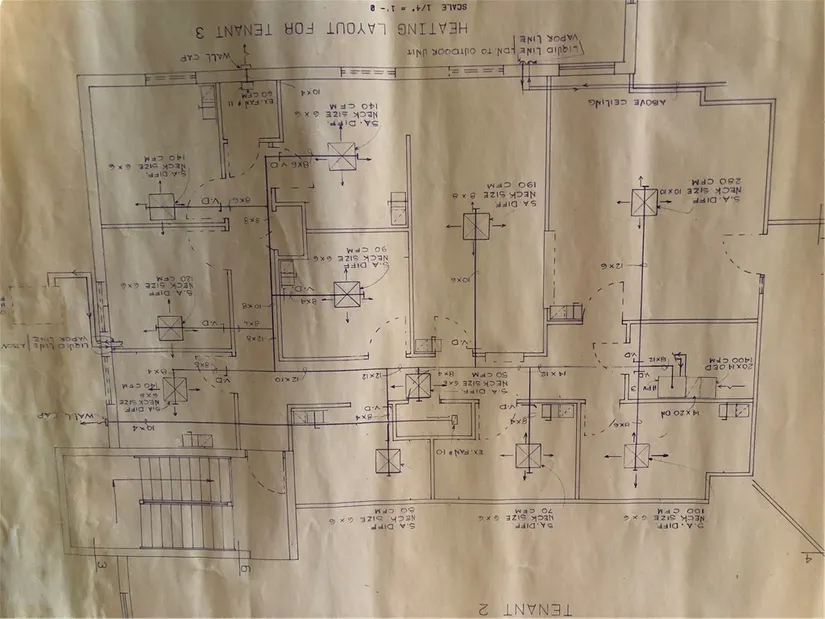 TENANT 2
4
6
3
S.A. DIFF
NECK SIZE 6x6
100 CFM
S.A. DIFF
NECK SIZE 6x6
70 CFM
S.A DIFF
NECK SIZE 6x6
50 CFM
EX. FAN #10
8x6
V.D
8x4
V.D
8x4
V.D
10x4
WALL CAP
14x20 DN
HPU
3
20x14 OED
1400 CFM
18x12
V.D
14x12
S.A. DIFF
NECK SIZE 6x6
50 CFM
8x4
12x12
12x10
S.A. DIFF
NECK SIZE
6x6
140 CFM
V.D
8x6
8x4
V.D
V.D
LIQUID LINE
VAPOR LINE
12x8
10x8
8x6
S.A DIFF
NECK SIZE 6x6
120 CFM
S.A DIFF
NECK SIZE 6x6
90 CFM
V.D
8x4
12x6
10x6
S.A. DIFF
NECK SIZE 10x10
280 CFM
S.A DIFF
NECK SIZE 8x8
190 CFM
8x8
8x6
V.D
S.A. DIFF
NECK SIZE 6x6
140 CFM
8x6
V.D
S.A. DIFF
NECK SIZE 6x6
140 CFM
ABOVE CEILING
10x4
EX. FAN #11
50 CFM
WALL CAP
LIQUID LINE
VAPOR LINE
DN TO OUTDOOR UNIT
HEATING LAYOUT FOR TENANT 3
SCALE 1/4" = 1'-0